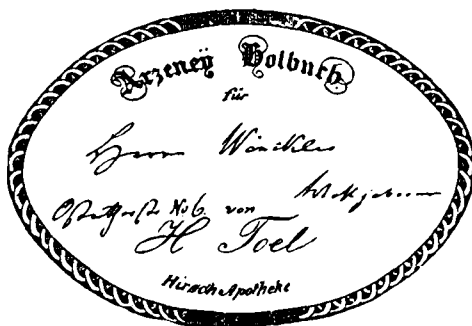 Arzeneÿ Holbuch
für
Herr Winckler
No 6. von
H Toel
Hirsch Apotheke